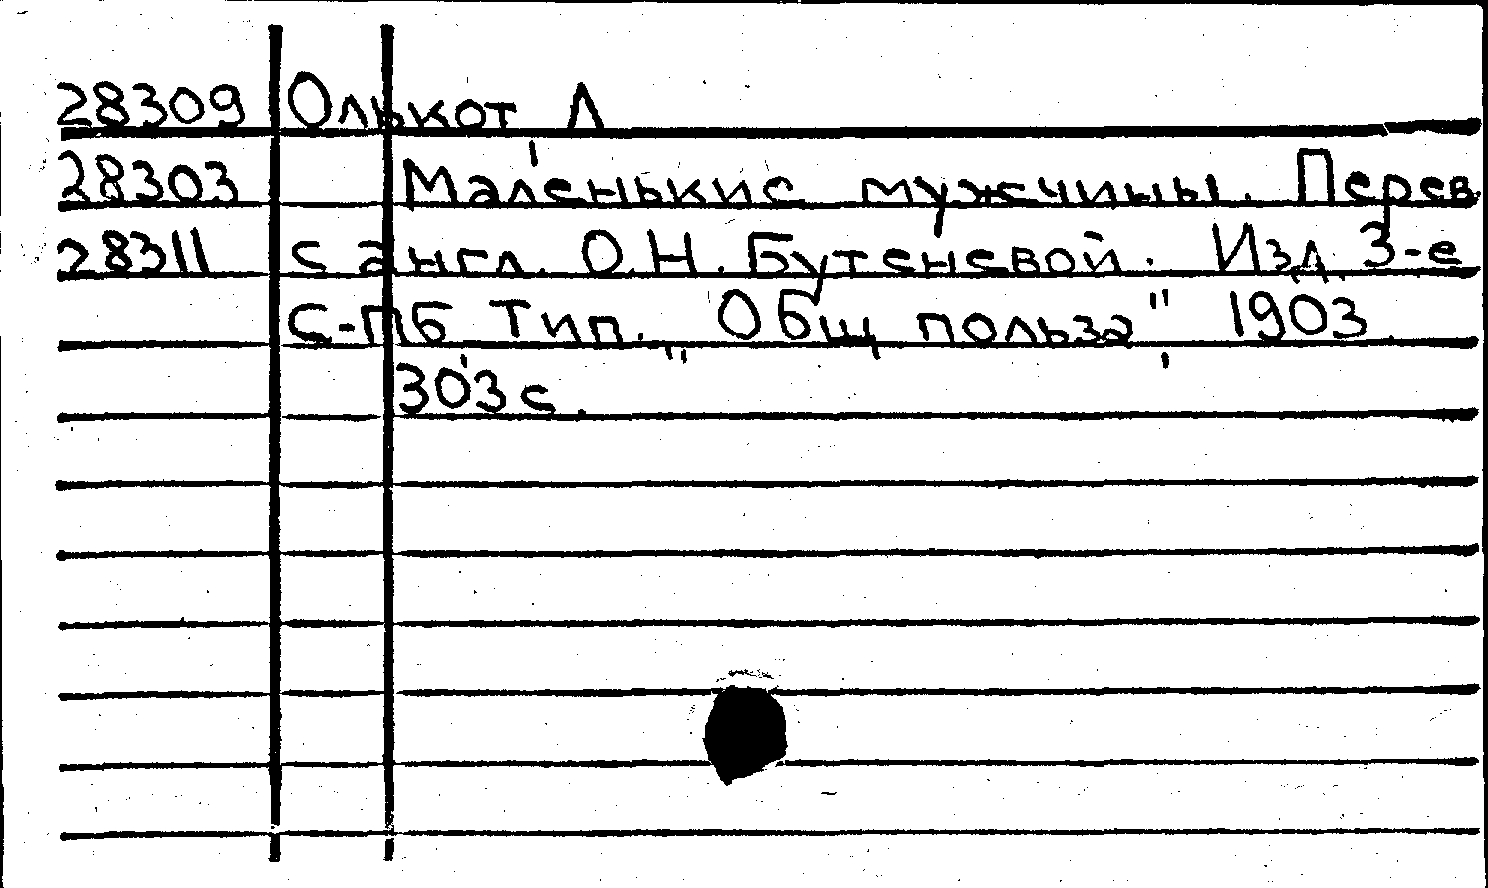 28309 Олькот Л
28303 Маленькие мужчины. Перев.
28311 с англ. О.Н. Бутеневой. Изд. 3-е
С-Пб Тип. „Общ польза" 1903.
303 с.